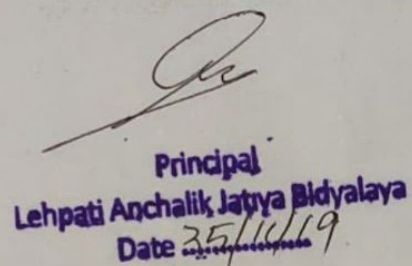 Principal
Lehpati Anchalik Jatiya Bidyalaya
Date 25/11/19